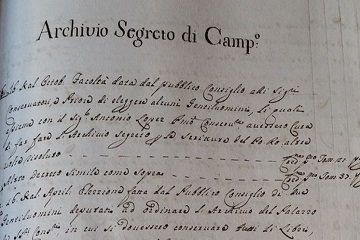 Archivio Segreto di Campº.
16 Kal. Facoltà data dal Pubblico Consiglio alli Sigri
Conservatori, e Priore di eleggere alcuni Gentiluomini, li quali
insieme con il Sigr. Antonio Conservre. avessero Cura
di far fare l'Archivio segreto, e Po. Ro. altre
volte risoluto
Altro Decreto simile come sopra
16 Kal. April. Elezione fatta dal Pubblico Consiglio di due
Gentiluomini deputati ad ordinare l'Archivio del Palazzo
in cui si dovessero conservare tutti li Libri,